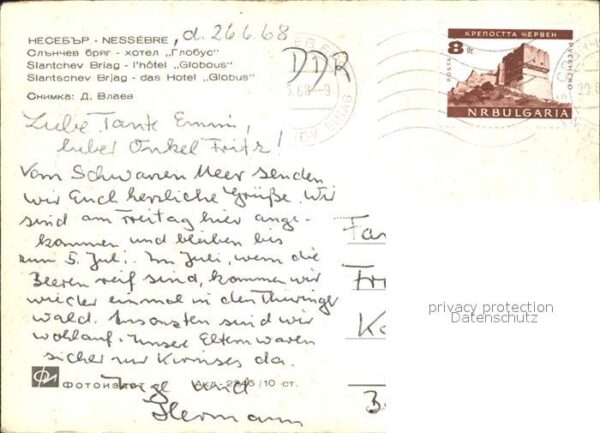 НЕСЕБЪР - NESSÈBRE, d. 26.6.68
Слънчев бряг - хотел „Глобус"
Slantchev Briag - l'hôtel „Globous"
Slantschev Brjag - das Hotel „Globus"
Снимка: Д. Влаев
DDR
КРЕПОСТТА ЧЕРВЕН
8 СТ.
ПОЩА
РУСЕНСКО
NRBULGARIA
Liebe Tante Emmi,
lieber Onkel Fritz!
Vom Schwarzen Meer senden
wir Euch herzliche Grüße. Wir
sind am Freitag hier ange-
kommen und bleiben bis
zum 5. Juli. Im Juli, wenn die
Beeren reif sind, kommen wir
wieder einmal in den Thüringer
wald. Ansonsten sind wir
wohlauf. Unsere Eltern waren
sicher zur Kirmes da.
Inge und
Hermann
Fa
Fr
Ka
B
privacy protection
Datenschutz
ФОТОИЗДАТ
10 ст.